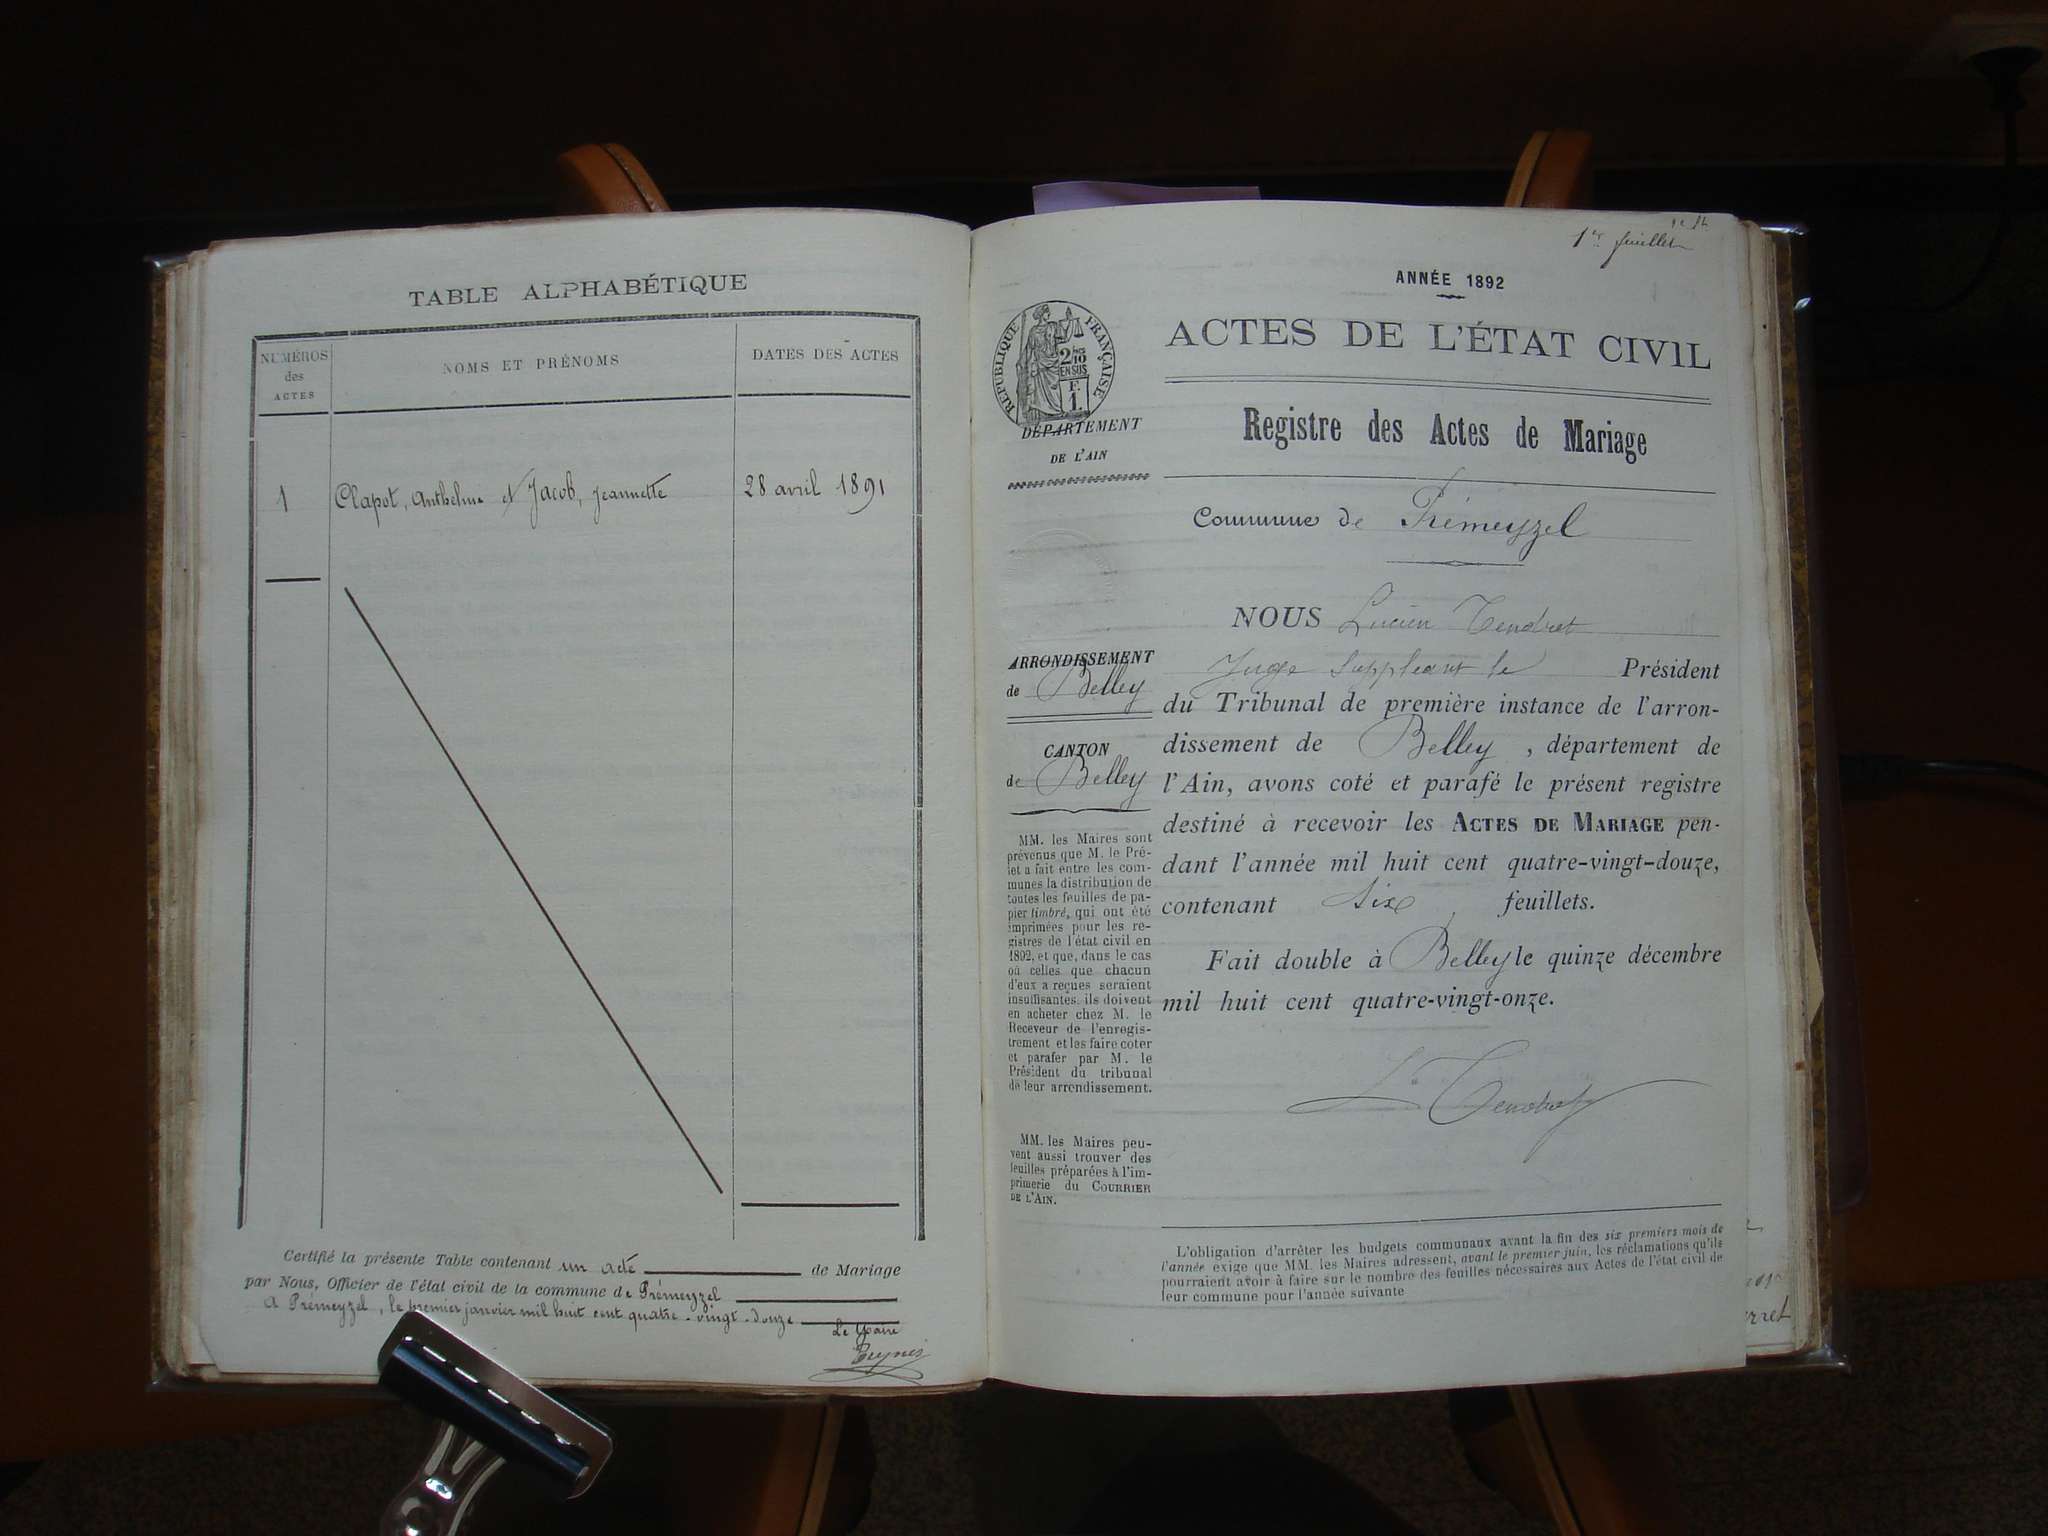 TABLE ALPHABÉTIQUE
NUMÉROS
des
ACTES
NOMS ET PRÉNOMS
DATES DES ACTES
1
Clapot, Anthelme et Jacob, Jeannette
28 avril 1891
Certifié la présente Table contenant un acte de Mariage
par Nous, Officier de l'état civil de la commune de Prémeyzel
A Prémeyzel, le premier janvier mil huit cent quatre-vingt-douze
Le Maire
1er feuillet
ANNÉE 1892
ACTES DE L'ÉTAT CIVIL
RÉPUBLIQUE FRANÇAISE
2/10
EN SUS
F.
1.
DÉPARTEMENT
DE L'AIN
Registre des Actes de Mariage
Commune de Prémeyzel
ARRONDISSEMENT
de Belley
CANTON
de Belley
MM. les Maires sont
prévenus que M. le Pré-
fet a fait entre les com-
munes la distribution de
toutes les feuilles de pa-
pier timbré, qui ont été
imprimées pour les re-
gistres de l'état civil en
1892, et que, dans le cas
où celles que chacun
d'eux a reçues seraient
insuffisantes, ils doivent
en acheter chez M. le
Receveur de l'enregis-
trement et les faire coter
et parafer par M. le
Président du tribunal
de leur arrondissement.
MM. les Maires peu-
vent aussi trouver des
feuilles préparées à l'im-
primerie du COURRIER
DE L'AIN.
NOUS Lucien Tendret
Juge Suppléant le Président
du Tribunal de première instance de l'arron-
dissement de Belley, département de
l'Ain, avons coté et parafé le présent registre
destiné à recevoir les ACTES DE MARIAGE pen-
dant l'année mil huit cent quatre-vingt-douze,
contenant six feuillets.
Fait double à Belley le quinze décembre
mil huit cent quatre-vingt-onze.
L. Tendret
L'obligation d'arrêter les budgets communaux avant la fin des six premiers mois de
l'année exige que MM. les Maires adressent, avant le premier juin, les réclamations qu'ils
pourraient avoir à faire sur le nombre des feuilles nécessaires aux Actes de l'état civil de
leur commune pour l'année suivante